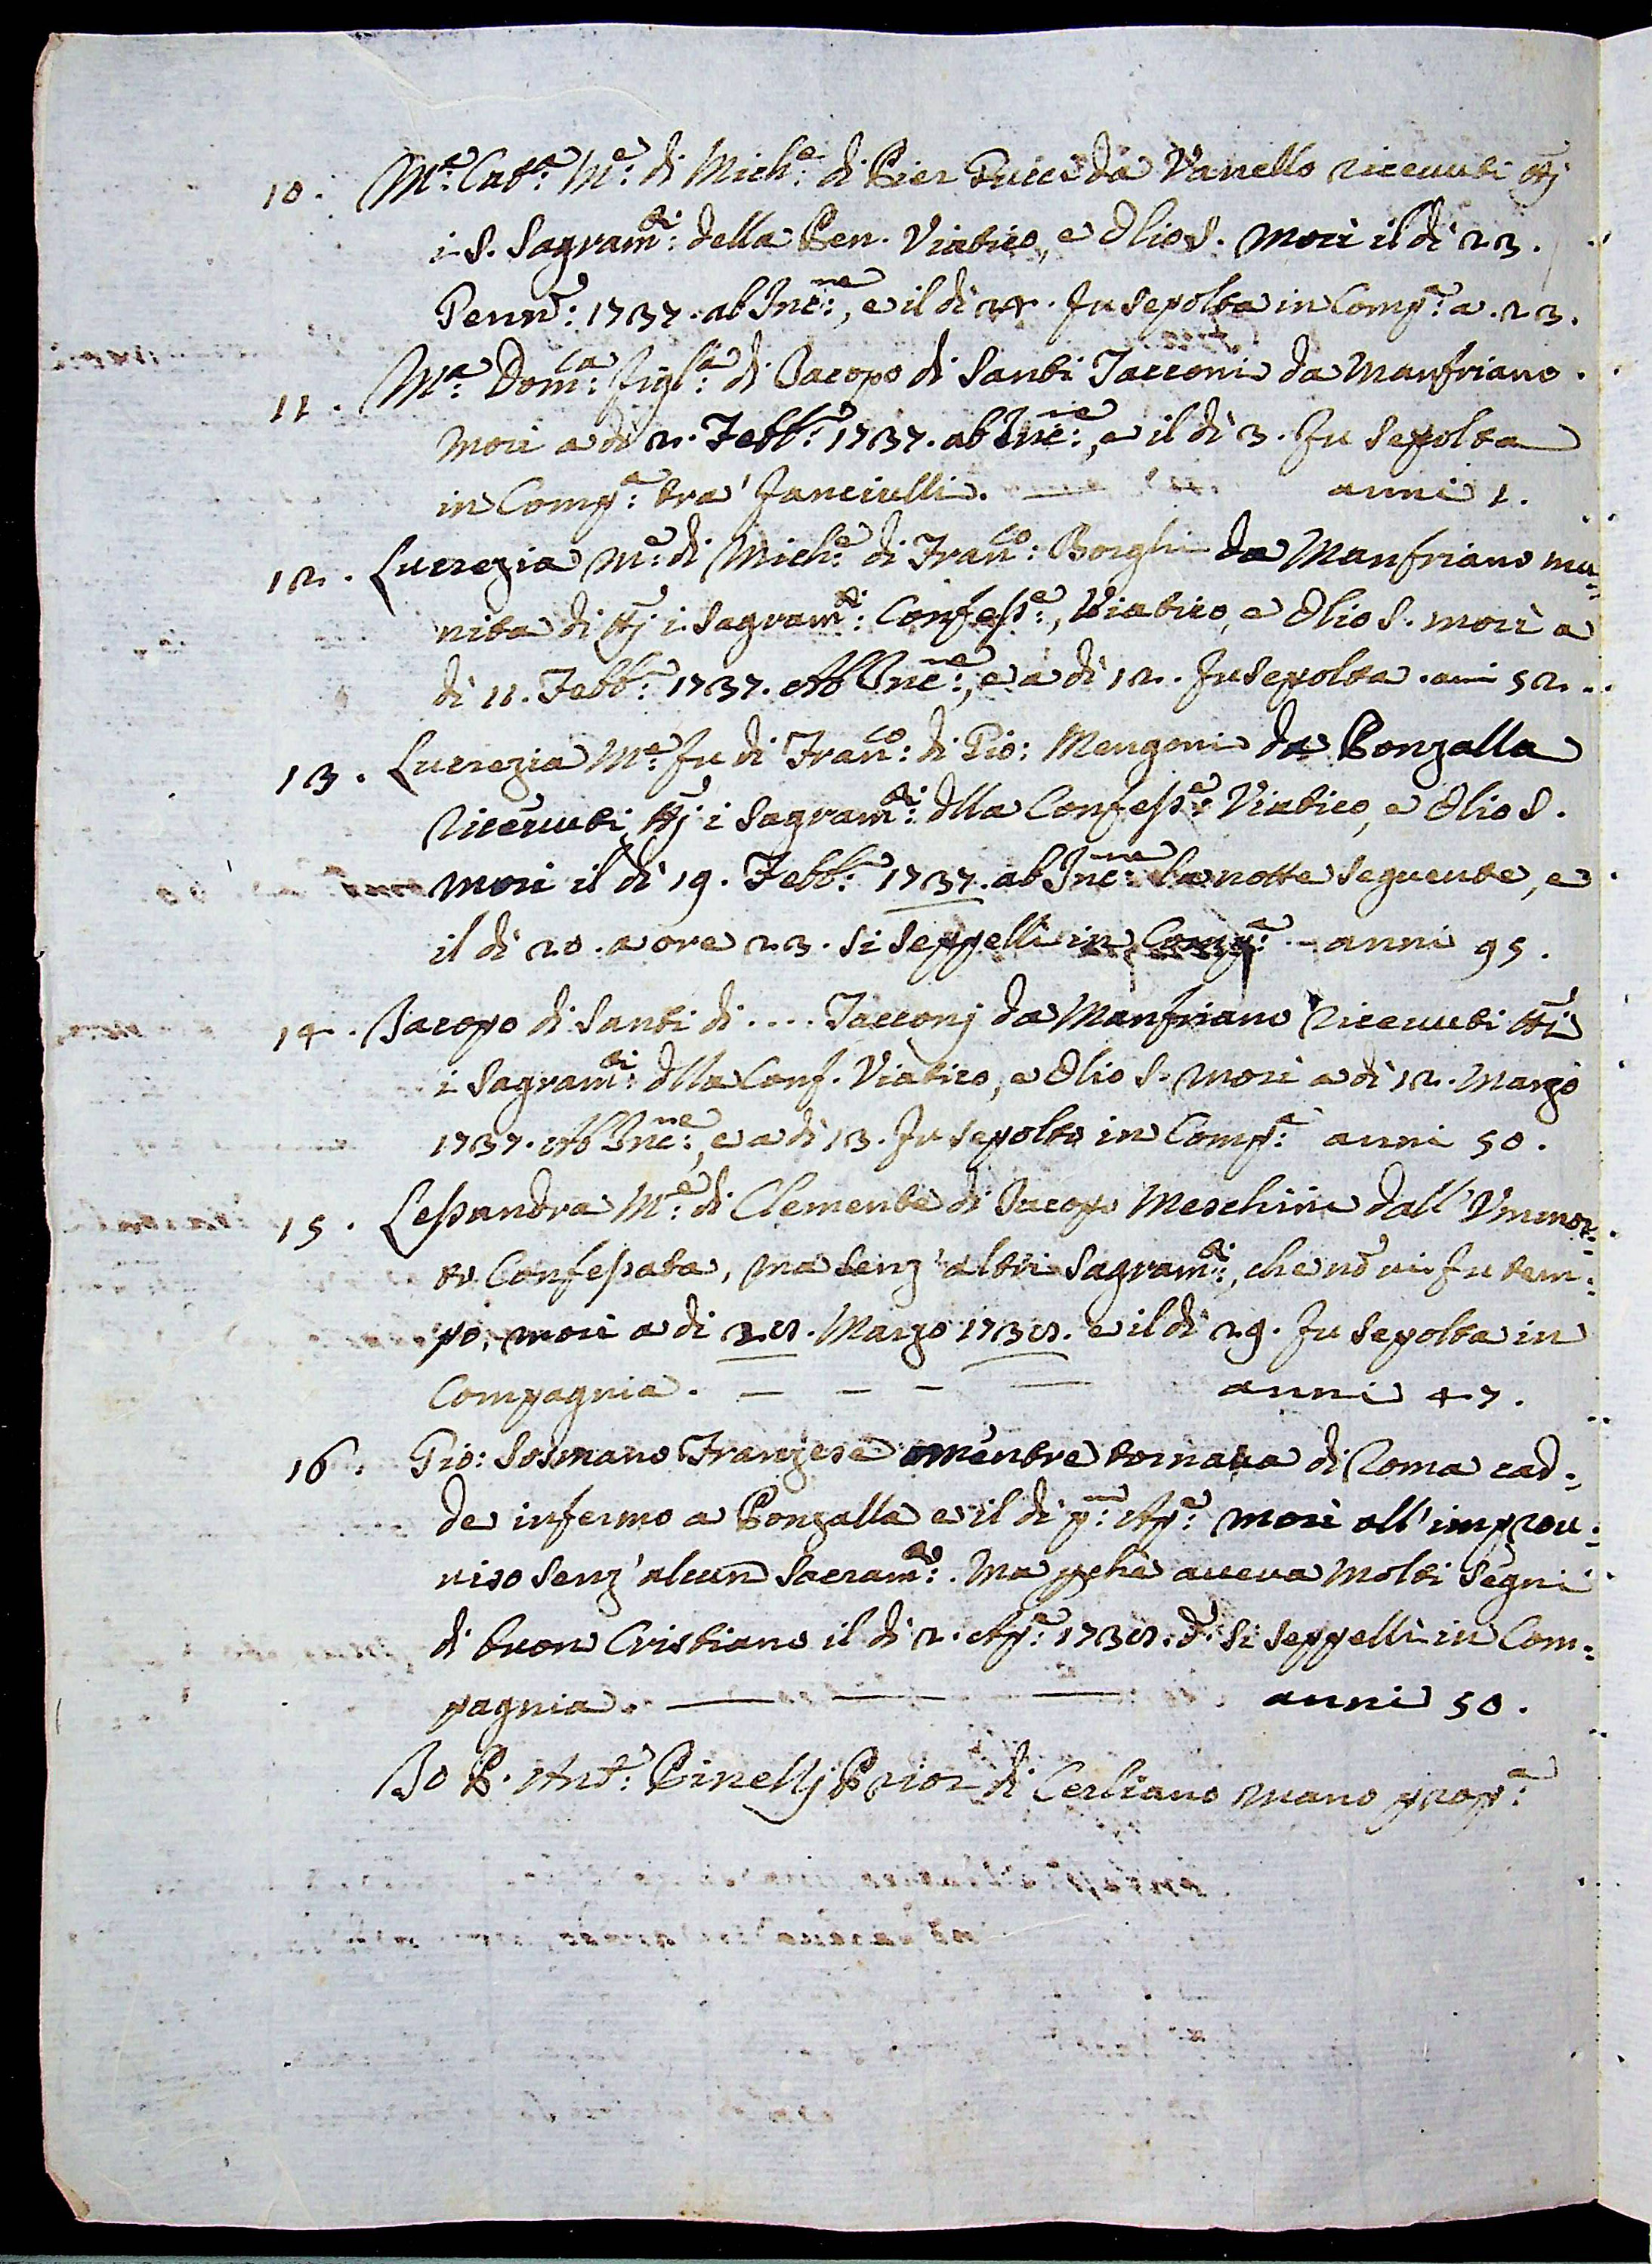 10. M.ª Cat.ª M.e di Mich.e di Pier Gucci da Vanello riceuuti ttj
i S. Sagram.ti: della Pen. Viatico, e Olio S. Morì il dì 23.
Genn.o: 1737. ab Inc.ne:, e il dì 24. fu sepolta in Comp.ª a. 23.
11. M.ª Dom.ca: figl.ª: di Jacopo di Santi Tacconi da Manfriano.
Morì a dì 2. Febb.o: 1737. ab Inc.ne:, e il dì 3. fu sepolta
in Comp.ª: tra' fanciulli. — anni 1.
12. Lucrezia M.e: di Mich.e di Fran.co: Borghi da Manfriano mu-
nita di ttj i Sagram.ti: Confess.e:, Viatico, e Olio S. morì a
dì 11. Febb.o: 1737. Ab Inc.ne:, e a dì 12. fu sepolta. ani 52.
13. Lucrezia M.e fu di Fran.co: di Gio: Mengoni da Ronzalla
riceuuti ttj i Sagram.ti: dlla Confess.e: Viatico, e Olio S.
morì il dì 19. Febb.o: 1737. ab Inc.ne: la notte seguente, e
il dì 20. a ore 23. si seppellì in Comp.ª: - anni 95.
14. Jacopo di Santi di .... Tacconj da Manfriano riceuuti tti
i Sagram.ti: dlla Conf. Viatico, e Olio S. morì a dì 12. Marzo
1737. Ab Inc.ne:, e a dì 13. fu sepolto in Comp.ª: anni 50.
15. Lessandra M.e: di Clemente di Jacopo Meschini dall'Ummor-
to Confessata, ma senz'altri Sagram.ti:, che nō ui fu tem-
po, morì a dì 28. Marzo 1738. e il dì 29. fu sepolta in
Compagnia. — — — — anni 47.
16. Gio: Franzese mentre tornaua di Roma cad-
de infermo a Ronzalla e il dì p.mo: Ap.e: morì all'improu-
uiso senz'alcun Sacram.to:. Ma pchè aueua molti segni
di buon Cristiano il dì 2. Ap.e: 1738. d.o si seppellì in Com-
pagnia. — — — anni 50.
Jo P. Ant.o: Pinellj Prior di Cerliano mano prop.ª: